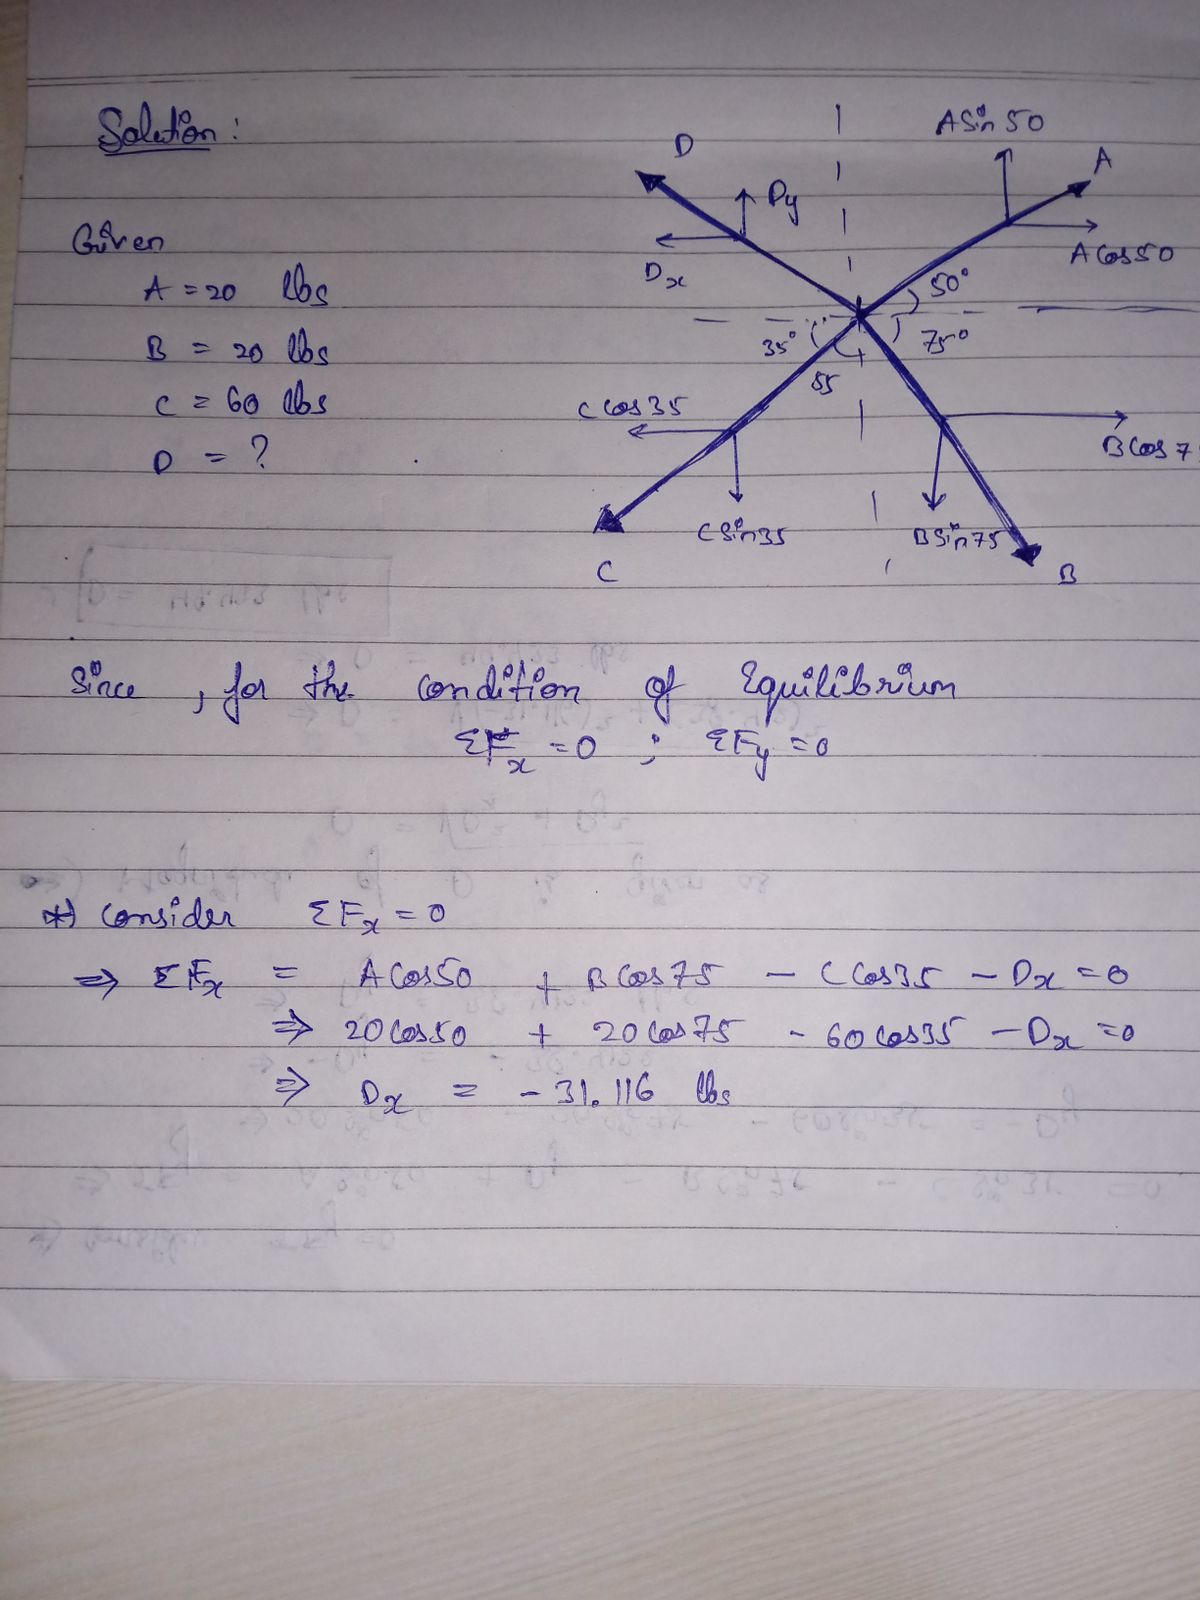 Solution :
Given
A = 20 lbs
B = 20 lbs
C = 60 lbs
D = ?
D
Dy
Dx
A Sin 50
A
A Cos 50
50°
35°
75°
55
C Cos 35
C Sin 35
C
B Cos 7
B Sin 75
B
Since , for the condition of Equilibrium
ΣFx = 0 ; ΣFy = 0
*) Consider ΣFx = 0
⇒ ΣFx = A Cos 50 + B Cos 75 - C Cos 35 - Dx = 0
⇒ 20 Cos 50 + 20 Cos 75 - 60 Cos 35 - Dx = 0
⇒ Dx = - 31.116 lbs